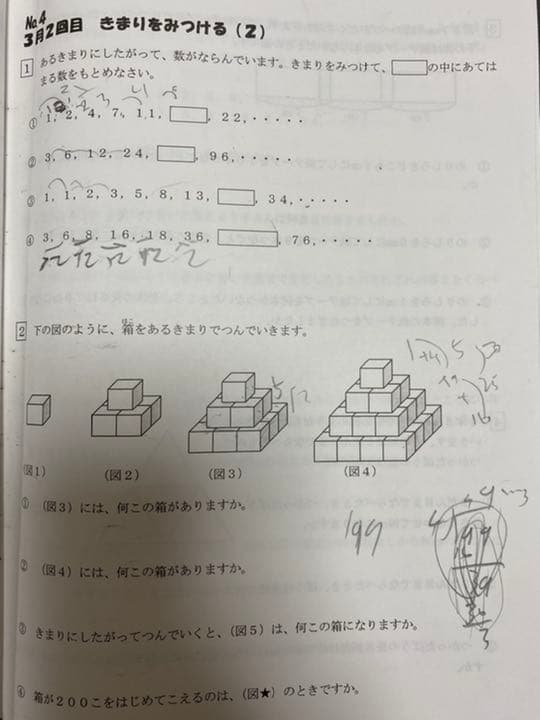 No.4
3月2回目 きまりをみつける(2)
1 あるきまりにしたがって、数がならんでいます。きまりをみつけて、□の中にあては
まる数をもとめなさい。
① 1, 2, 4, 7, 11, □, 22, ・・・・・
② 3, 6, 12, 24, □, 96, ・・・・・
③ 1, 1, 2, 3, 5, 8, 13, □, 34, ・・・・・
④ 3, 6, 8, 16, 18, 36, □, 76, ・・・・・
2 下の図のように、箱をあるきまりでつんでいきます。
はこ
(図1) (図2) (図3) (図4)
① (図3)には、何この箱がありますか。
199
② (図4)には、何この箱がありますか。
③ きまりにしたがってつんでいくと、(図5)は、何この箱になりますか。
④ 箱が200こをはじめてこえるのは、(図★)のときですか。